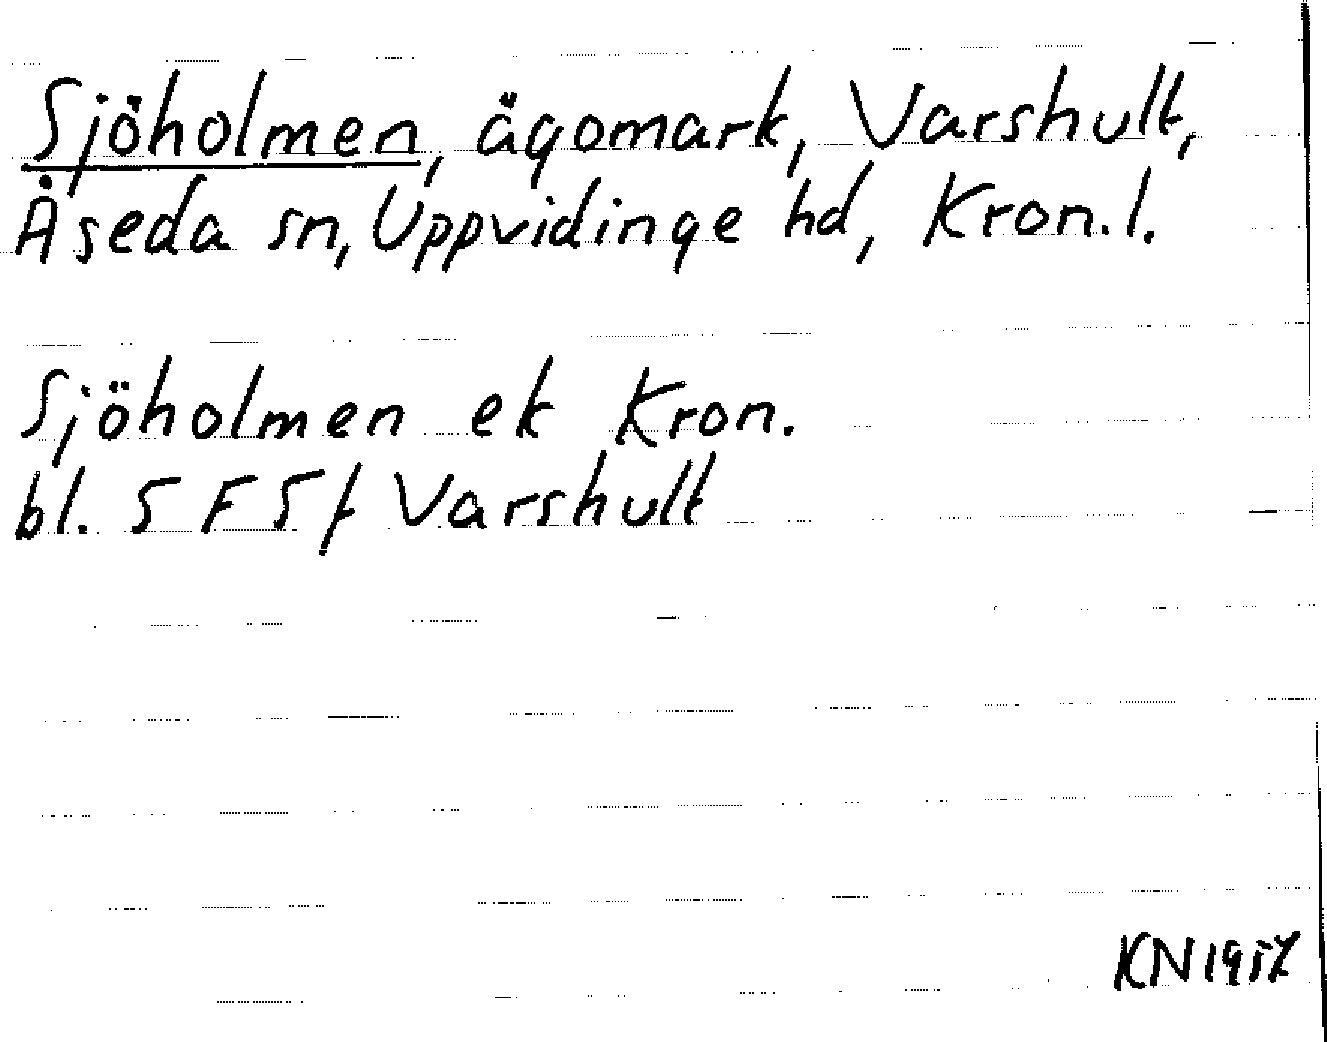 Sjöholmen, ägomark, Varshult,
Åseda sn, Uppvidinge hd, Kron.l.
Sjöholmen ek Kron.
bl. 5 F 5 f Varshult
KN 1957